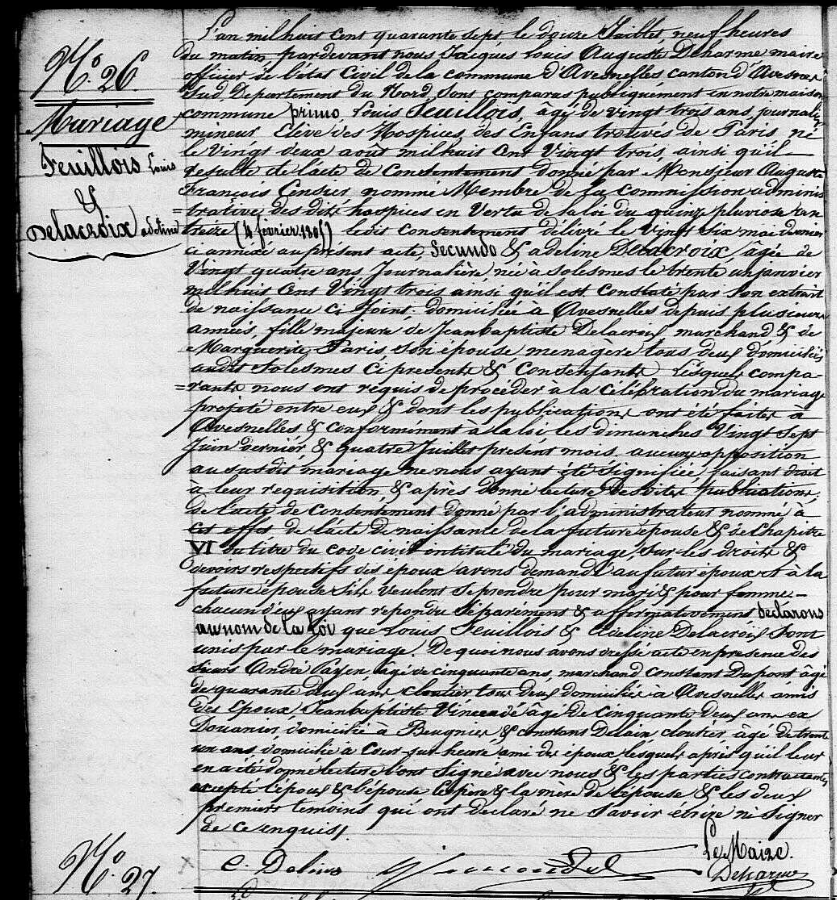 N.° 26.
Mariage
Feuillois Louis
&
Delacroix adeline
L'an mil huit cent quarante sept le douze Juillet, neuf heures
du matin pardevant nous Jacques Louis Auguste Deharme maire
officier de l'etat Civil de la commune d'Avesnelles canton d'Avesnes
Sud, Departement du Nord, Sont comparus publiquement en notre maison
commune primo, Louis Feuillois, âgé de vingt trois ans, journalier
mineur Elève des Hospices, des Enfans trouvés de Paris né
le vingt deux aout mil huit cent vingt trois, ainsi qu'il
resulte de l'acte de Consentement donné par Monsieur Auguste
François nommé Membre de la Commission adminis
=trative des dits hospices en Vertu de la loi du quinze pluviose an
treize (4 février 1805) ledit Consentement délivré le Vingt Six mai dernier
ci annexé au présent acte, Secundo & adeline Delacroix, âgée de
Vingt quatre ans Journalière née a Solesmes le trente un janvier
mil huit Cent Vingt trois ainsi qu'il est constaté par Son extrait
de naissance ci Joint, domiciliée a Avesnelles depuis plusieurs
années fille majeure de Jean baptiste Delacroix marchand & de
Marguerite Paris Son épouse menagère tous deux domiciliés
audit Solesmes ci présents & Consentants lesquels compa-
=rants nous ont requis de procéder à la Célébration du mariage
projeté entre eux & dont les publications ont été faites à
Avesnelles & conformément à la loi, les dimanches Vingt Sept
Juin dernier & quatre Juillet présent mois, aucune opposition
au susdit mariage ne nous ayant été Signifiée, faisant droit
à leur requisition & après donné lecture desdites publications,
de l'acte de Consentement donné par l'administrateur nommé à
cet effet de l'acte de naissance de la future épouse & de Chapitre
VI du titre du code civil intitulé du mariage, Sur les droits &
devoirs respectifs des époux avons demandé au futur époux et à la
future épouse S'ils veulent Se prendre pour mari & pour femme-
chacun d'eux ayant repondu Séparément & affirmativement declarons
au nom de la Loi que Louis Feuillois & Adeline Delacroix Sont
unis par le mariage. De quoi nous avons dressé acte en presence des
Sieurs André Payen, âgé de cinquante ans, marchand Constant Dupont âgé
de quarante deux ans cloutier tous deux domiciliés à Avesnelles amis
des Epoux, Jean baptiste âgé de cinquante deux ans ex
Douanier, domicilié à Beugnies & constant Delair cloutier âgé de trente
un ans domicilié à Cour-sur-heure ami des époux lesquels après qu'il leur
en a été donné lecture ont Signé avec nous & les parties contractantes,
excepté l'époux & l'épouse le père & la mere de l'épouse & les deux
premiers temoins qui ont declaré ne Savoir écrire ne Signer
de ce enquis.
Le Maire.
Deharme
N.° 27.